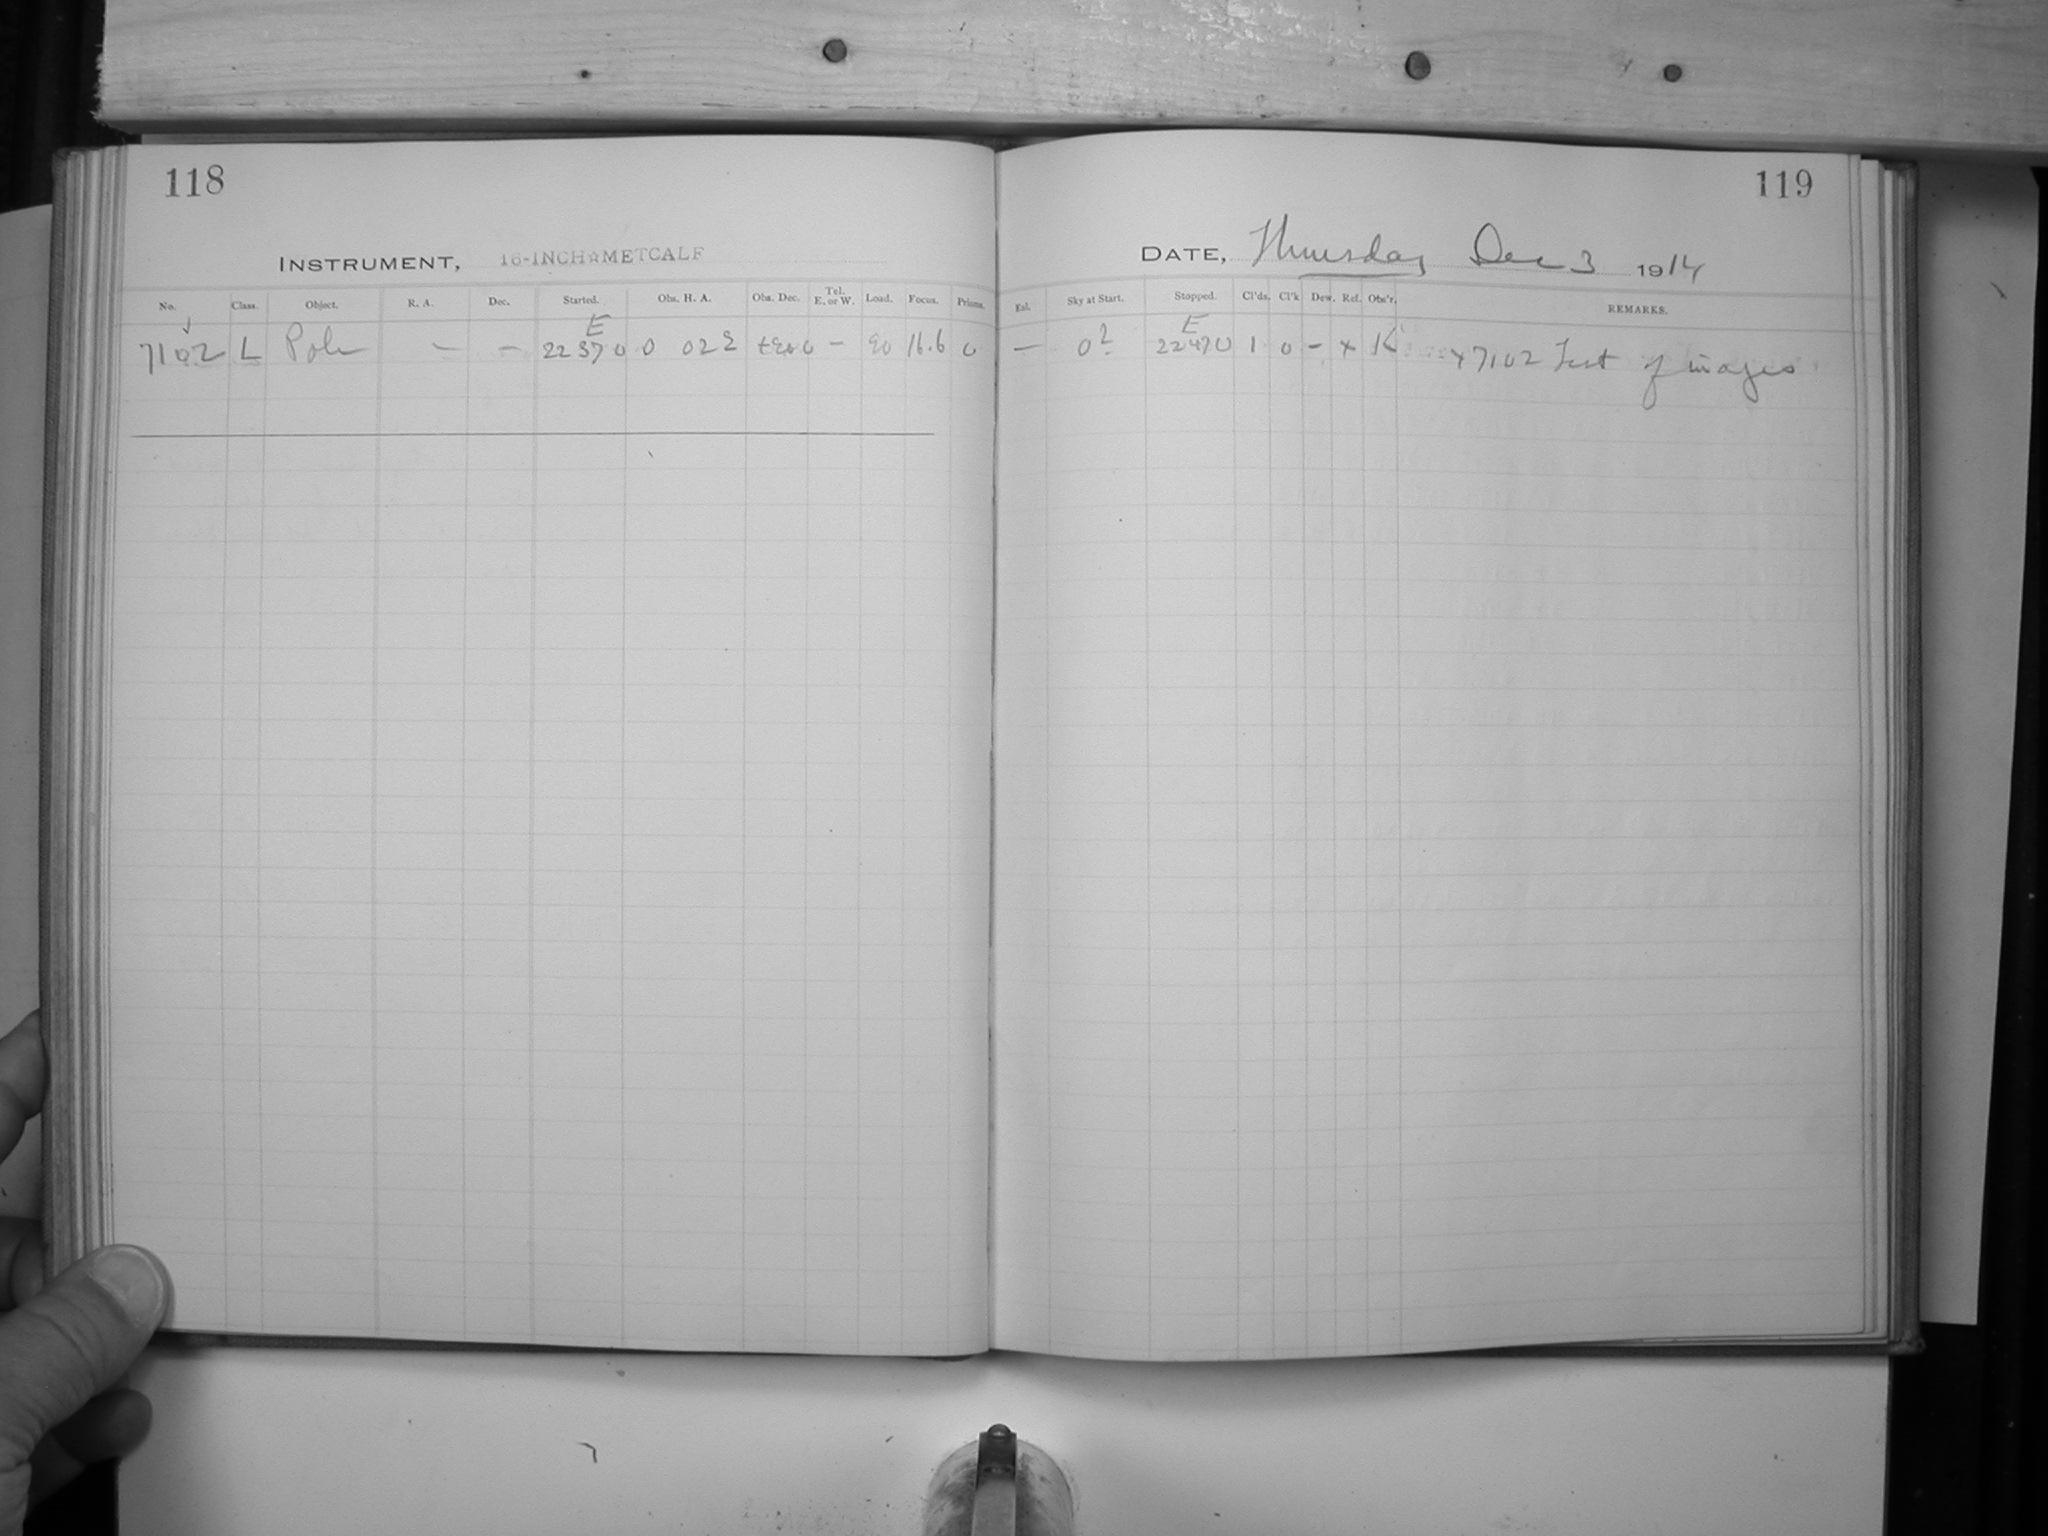 118
INSTRUMENT, 16-INCH☆METCALF
No. Class. Object. R. A. Dec. Started. Obs. H. A. Obs. Dec. Tel. E. or W. Load. Focus. Prisms.
E
7102 L Pole — — 22 37 0 0 02 — 16.6 0
119
DATE, Thursday Dec 3 1914
Exl. Sky at Start. Stopped. Cl'ds. Cl'k Dew. Ref. Obs'r. REMARKS.
E
— 0? 22 47 0 1 0 — x K x 7102 Test of images